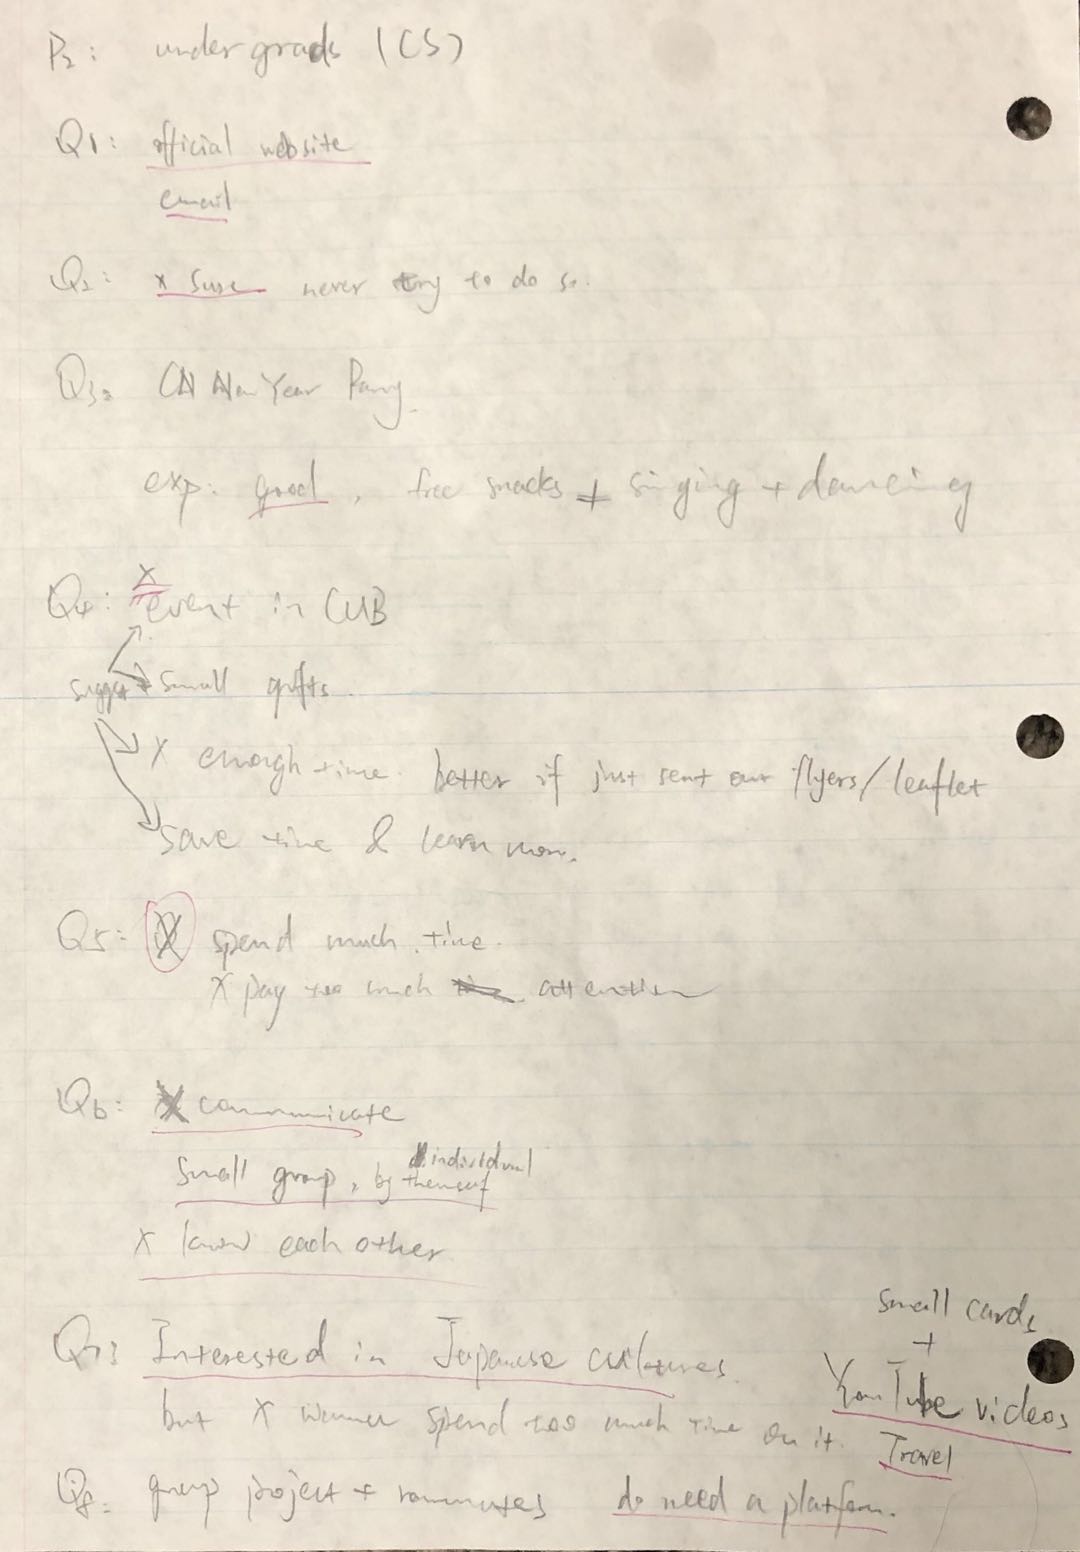 P2: undergrads (CS)
Q1: official website
email
Q2: x sure never try to do so.
Q3: CN New Year Party.
exp: good, free snacks + singing + dancing
Q4: x event in CUB
suggest small gifts.
x enough time. better if just sent out flyers/leaflet
save time & learn more.
Q5: X spend much time.
x pay too much attention
Q6: X communicate
small group, by themself individual
x know each other
Q7: Interested in Japanese cultures.
but x wanna spend too much time on it.
small cards
+
YouTube videos
Travel
Q8: group project + roommates do need a platform.